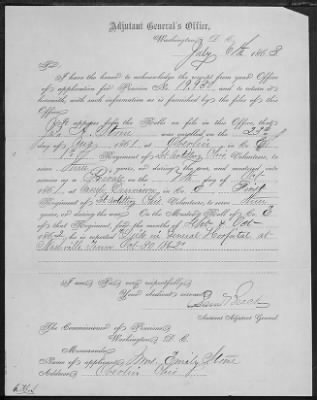 Adjutant General's Office,
Washington, D. C.
July 6th 1863
Sir:
I have the honor to acknowledge the receipt from your Office
of application for Pension No. and to return it
herewith, with such information as is furnished by the files of this
Office.
It appears from the Rolls on file in this Office, that
Stone was enrolled on the 23rd
day of Aug, 1861 at Oberlin in Co.
Regiment of Artillery Ohio Volunteers, to serve
three years, or during the war, and mustered into
service as a Private on the day of
1861, at Camp Dennison, in Co. E First
Regiment of Artillery Ohio Volunteers, to serve three
years, or during the war. On the Muster Roll of Co. E
of that Regiment, for the months of Sept & Oct
1862 he is reported "Died in General Hospital at
Nashville Tenn Oct 30, 1862"
I am, Sir, very respectfully,
Your obedient servant,
Assistant Adjutant General
The Commissioner of Pensions
Washington D. C.
Memoranda:
Name of applicant, Mrs. Emily Stone
Address Oberlin Ohio